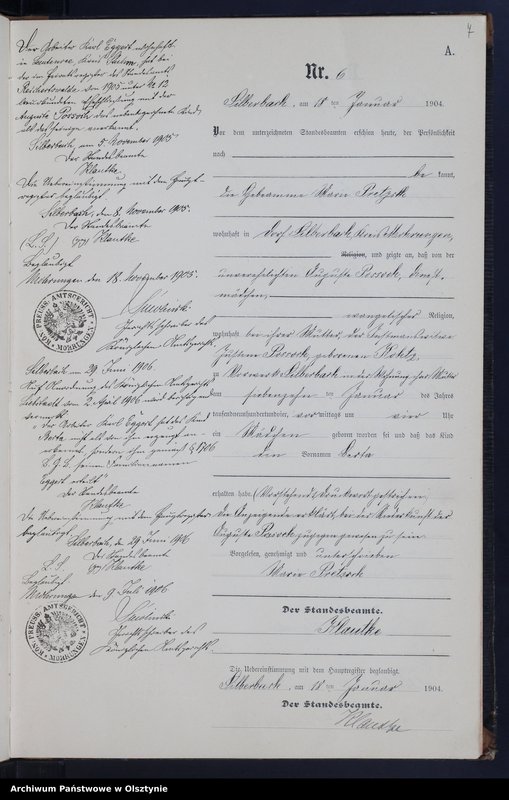 4
A.
Nr. 6
Silberbach, am 18 ten Januar 1904.
Vor dem unterzeichneten Standesbeamten erschien heute, der Persönlichkeit
nach
be kannt,
die Hebeamme Marie
wohnhaft in Dorf Silberbach Kreis Mohrungen,
Religion, und zeigte an, daß von der
unverehelichten Auguste Possock, Dienst-
mädchen,
evangelischer Religion,
wohnhaft bei ihrer Mutter, der
Possock, geborenen
zu Vorwerk Silberbach in der Wohnung ihrer Mutter
am siebzehnten Januar des Jahres
tausendneunhundertundvier, vormittags um vier Uhr
ein Mädchen geboren worden sei und daß das Kind
den Vornamen Berta
erhalten habe. (Vorstehend Druckwort gestrichen.
Die Anzeigende erklärt, bei der Niederkunft der
Auguste Possock zugegen gewesen zu sein.
Vorgelesen, genehmigt und unterschrieben
Marie
Der Standesbeamte.
Klautke
Die Uebereinstimmung mit dem Hauptregister beglaubigt.
Silberbach, am 18 ten Januar 1904.
Der Standesbeamte.
Klautke
Der Arbeiter Karl Eggert wohnhaft
in Kreis hat bei
der im Geburtsregister des Standesamts
Reichertswalde den 1905 unter No 12
beurkundeten Eheschließung mit der
Auguste Possock das nebenbezeichnete Kind
als das seinige anerkannt.
Silberbach, am 5 November 1905
Der Standesbeamte
Klautke
Die Uebereinstimmung mit dem Haupt-
register beglaubigt
Silberbach, den 8. November 1905.
Der Standesbeamte
(L. S.) gez. Klautke
Beglaubigt
Mohrungen den 18. November 1905.
Gerichtsschreiber des
Königlichen Amtsgerichts
KÖN. PREUSS. AMTSGERICHT MOHRUNGEN
Silberbach am 29 Juni 1906.
Auf Anordnung des Königlichen Amtsgerichts
Liebstadt vom 2 April 1906 wird berichtigend
vermerkt
"Der Arbeiter Karl Eggert hat das Kind
Berta nicht als von ihm erzeugt an-
erkannt, sondern ihm gemäß § 1706
B. G. B. seinen Familiennamen
Eggert erteilt"
Der Standesbeamte
Klautke
Die Uebereinstimmung mit dem Hauptregister
beglaubigt
Silberbach, den 29 Juni 1906
Der Standesbeamte
L. S. gez. Klautke
Beglaubigt
Mohrungen den 9 Juli 1906.
Gerichtsschreiber des
Königlichen Amtsgerichts.
KÖN. PREUSS. AMTSGERICHT MOHRUNGEN
Archiwum Państwowe w Olsztynie